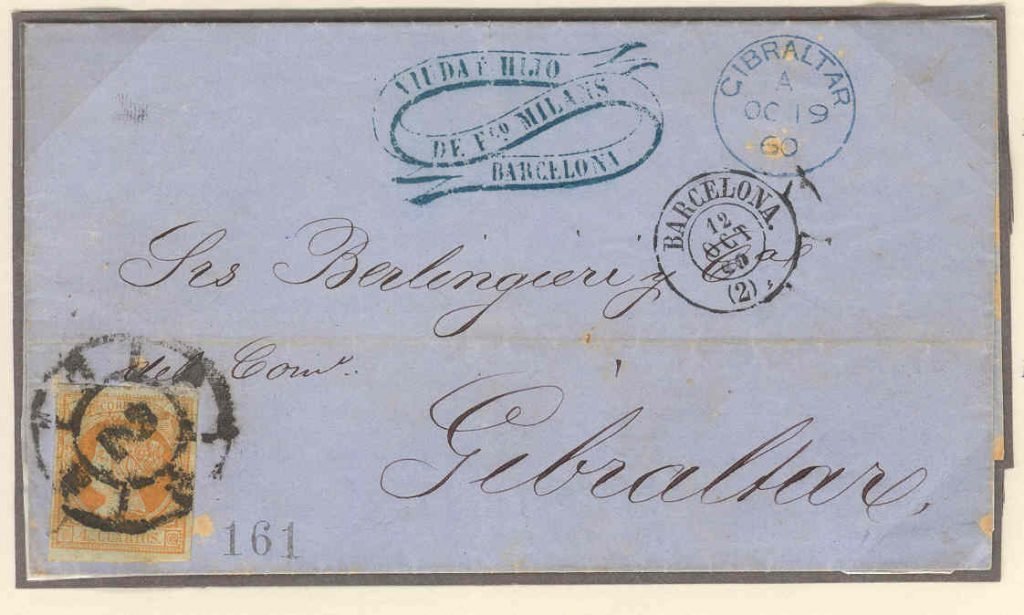 VIUDA É HIJO
DE Fco MILANS
BARCELONA
GIBRALTAR
A
OC 19
60
BARCELONA.
12
OCT
60
(2)
Srs Berlingieri y
del Come.
Gibraltar,
2
4 CUARTOS
161